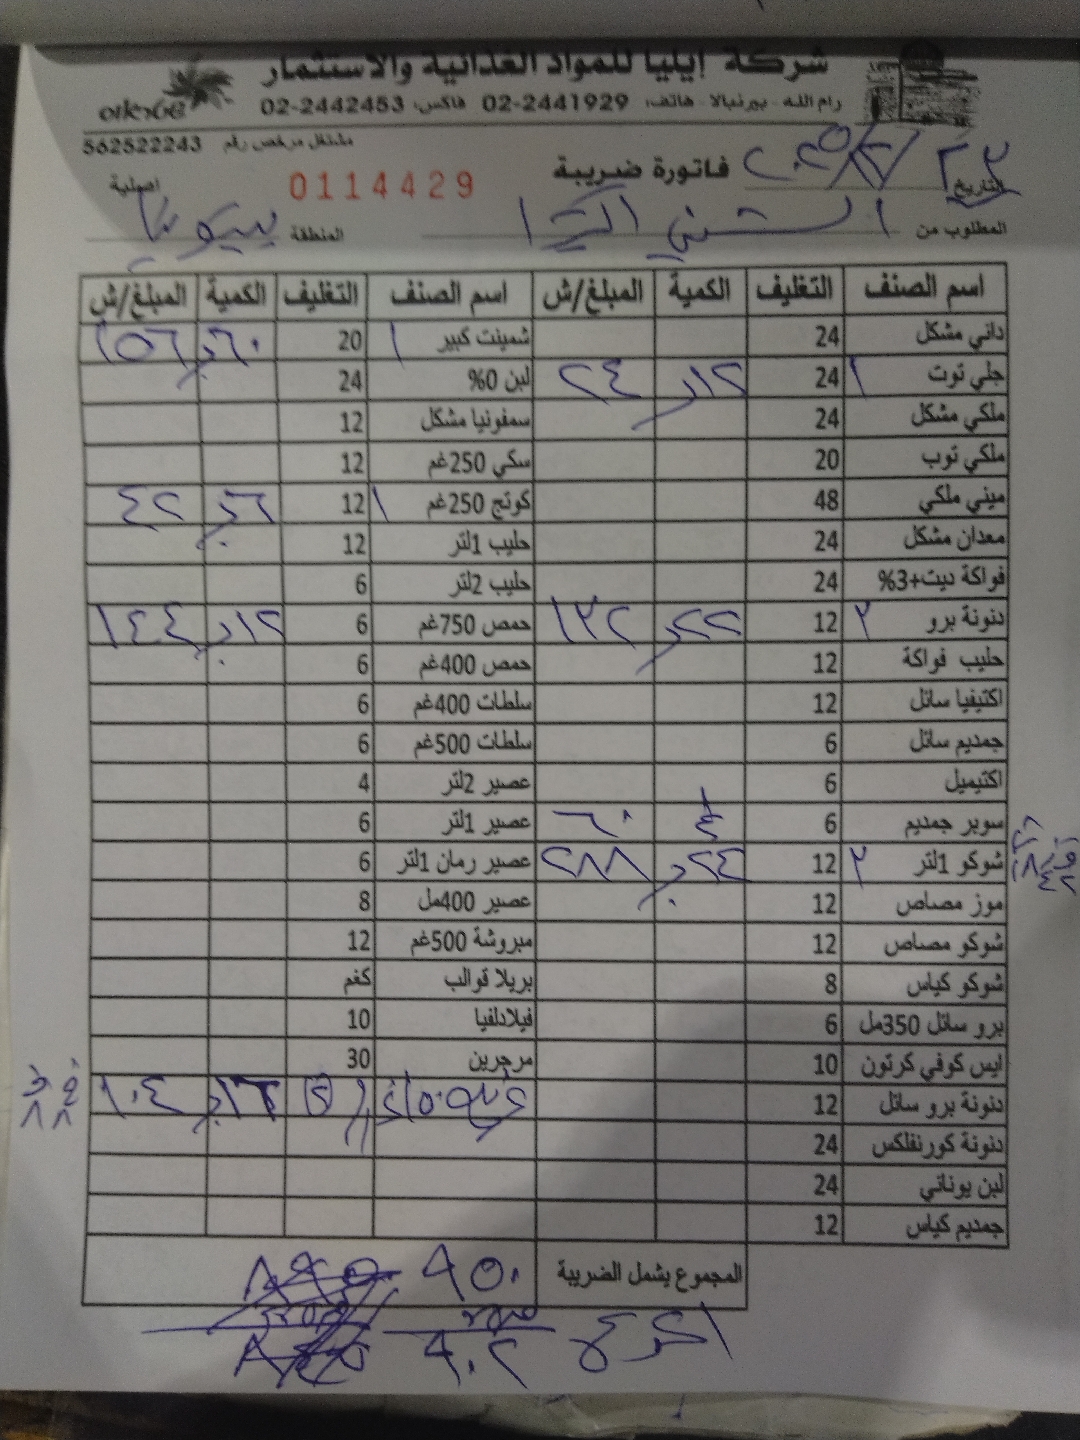 شركة إيليا للمواد الغذائية والاستثمار
رام الله - بيرنبالا - هاتف: 02-2441929 فاكس: 02-2442453
مشتغل مرخص رقم 562522243
التاريخ فاتورة ضريبة 0114429 اصلية
المطلوب من المنطقة
اسم الصنف التغليف الكمية المبلغ/ش اسم الصنف التغليف الكمية المبلغ/ش
داني مشكل 24 شمينت كبير ١ 20 ٦٠ ١٥٦
جلي توت ١ 24 ١٢ ٢٤ لبن 0% 24
ملكي مشكل 24 سمفونيا مشكل 12
ملكي توب 20 سكي 250غم 12
ميني ملكي 48 كوتج 250غم ١ 12 ٦ ٤٢
معدان مشكل 24 حليب 1لتر 12
فواكة ديت+3% 24 حليب 2لتر 6
دنونة برو ٢ 12 ٢٢ ١٣٢ حمص 750غم 6 ١٢ ١٤٤
حليب فواكة 12 حمص 400غم 6
اكتيفيا سائل 12 سلطات 400غم 6
جمديم سائل 6 سلطات 500غم 6
اكتيميل 6 عصير 2لتر 4
سوبر جمديم 6 ٤ ٦٠ عصير 1لتر 6
شوكو 1لتر ٢ 12 ٢٤ ٢٨٨ عصير رمان 1لتر 6
موز مصاص 12 عصير 400مل 8
شوكو مصاص 12 مبروشة 500غم 12
شوكو كياس 8 بريلا قوالب كغم
برو سائل 350مل 6 فيلادلفيا 10
ايس كوفي كرتون 10 مرجرين 30
دنونة برو سائل 12 ١٦ ١٠٤
دنونة كورنفلكس 24
لبن يوناني 24
جمديم كياس 12
المجموع يشمل الضريبة ٩٥٠
٩٠٢